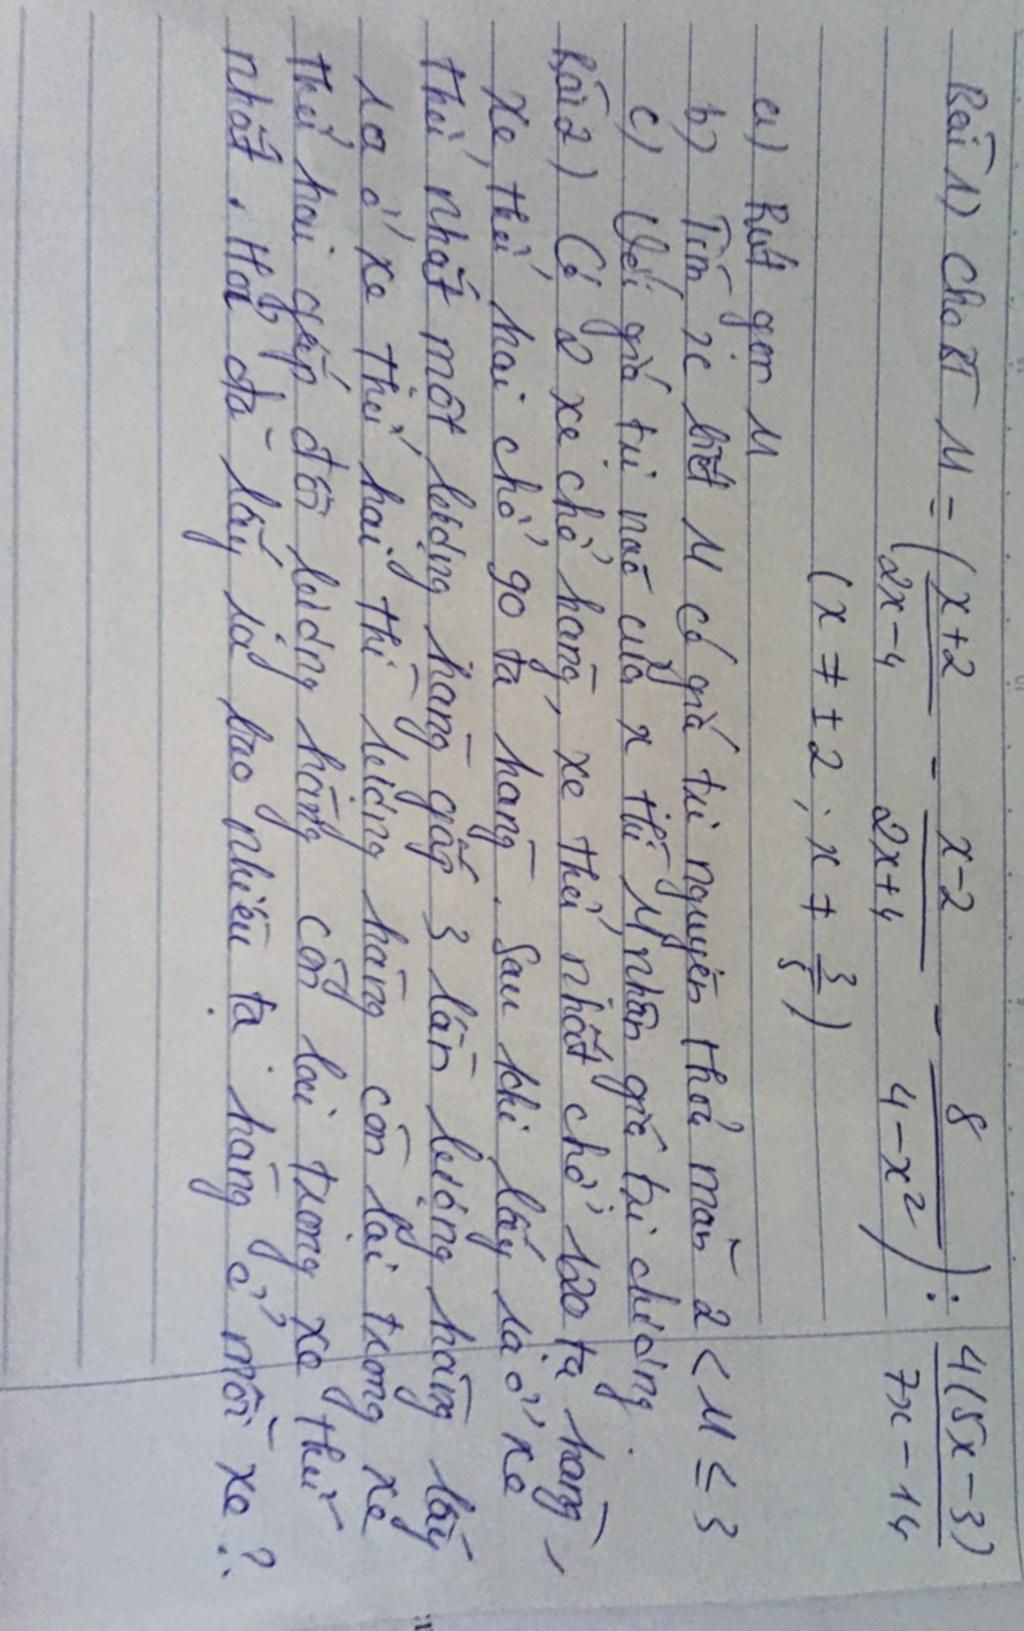 Bài 1) Cho BT M = ( x+2 / 2x-4 - x-2 / 2x+4 - 8 / 4-x² ) : 4(5x-3) / 7x-14
(x ≠ ±2 ; x ≠ 3/5)
a) Rút gọn M
b) Tìm x biết M có giá trị nguyên thoả mãn 2 < M ≤ 3
c) Với giá trị nào của x thì M nhận giá trị dương.
Bài 2) Có 2 xe chở hàng, xe thứ nhất chở 120 tạ hàng,
xe thứ hai chở 90 tạ hàng. Sau khi lấy ra ở xe
thứ nhất một lượng hàng gấp 3 lần lượng hàng lấy
ra ở xe thứ hai thì lượng hàng còn lại trong xe
thứ hai gấp đôi lượng hàng còn lại trong xe thứ
nhất. Hỏi đã lấy ra bao nhiêu tạ hàng ở mỗi xe?